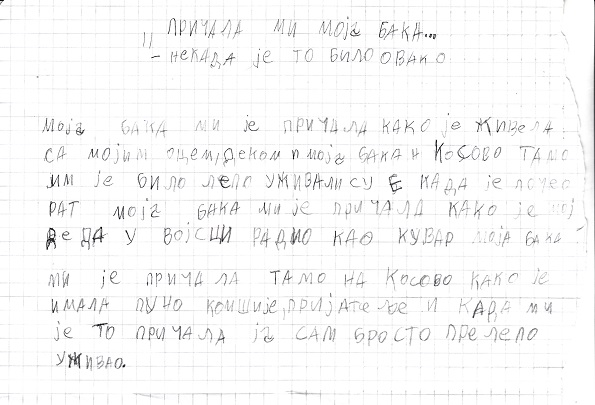 „ ПРИЧАЛА МИ МОЈА БАКА...
– НЕКАДА ЈЕ ТО БИЛО ОВАКО
МОЈА БАКА МИ ЈЕ ПРИЧАЛА КАКО ЈЕ ЖИВЕЛА
СА МОЈИМ ОЦЕМ, ДЕКОМ П МОЈА БАКА Н КОСОВО ТАМО
ИМ ЈЕ БИЛО ЛЕПО УЖИВАЛИ СУ Е КАДА ЈЕ ПОЧЕО
РАТ МОЈА БАКА МИ ЈЕ ПРИЧАЛА КАКО ЈЕ МОЈ
ДЕДА У ВОЈСЦИ РАДИО КАО КУВАР МОЈА БАКА
МИ ЈЕ ПРИЧАЛА ТАМО НА КОСОВО КАКО ЈЕ
ИМАЛА ПУНО КОМШИЈЕ, ПРИЈАТЕЉЕ И КАДА МИ
ЈЕ ТО ПРИЧАЛА ЈА САМ БРОСТО ПРЕЛЕПО
УЖИВАО.